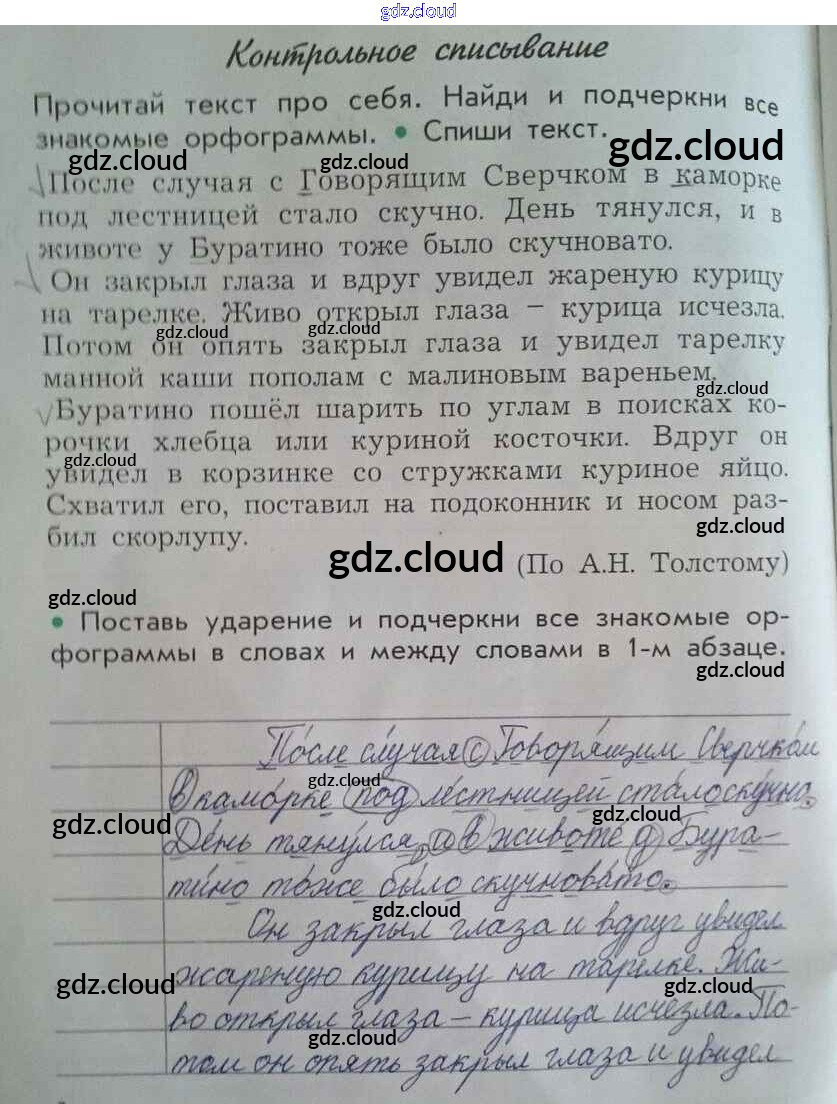 gdz.cloud
Контрольное списывание
Прочитай текст про себя. Найди и подчеркни все
знакомые орфограммы. • Спиши текст.
gdz.cloud gdz.cloud gdz.cloud
После случая с Говорящим Сверчком в каморке
под лестницей стало скучно. День тянулся, и в
животе у Буратино тоже было скучновато.
Он закрыл глаза и вдруг увидел жареную курицу
на тарелке. Живо открыл глаза – курица исчезла.
gdz.cloud gdz.cloud
Потом он опять закрыл глаза и увидел тарелку
манной каши пополам с малиновым вареньем.
gdz.cloud
Буратино пошёл шарить по углам в поисках ко-
рочки хлебца или куриной косточки. Вдруг он
gdz.cloud
увидел в корзинке со стружками куриное яйцо.
Схватил его, поставил на подоконник и носом раз-
gdz.cloud
бил скорлупу.
gdz.cloud
(По А.Н. Толстому)
gdz.cloud
• Поставь ударение и подчеркни все знакомые ор-
фограммы в словах и между словами в 1-м абзаце.
gdz.cloud
По́сле слу́чая с Говоря́щим Сверчко́м
gdz.cloud
в камо́рке под ле́стницей ста́ло ску́чно.
gdz.cloud
День тяну́лся, и в животе́ у Бура-
ти́но то́же бы́ло скучнова́то.
gdz.cloud
Он закрыл глаза и вдруг увидел
жареную курицу на тарелке. Жи-
gdz.cloud gdz.cloud
во открыл глаза – курица исчезла. По-
gdz.cloud
том он опять закрыл глаза и увидел